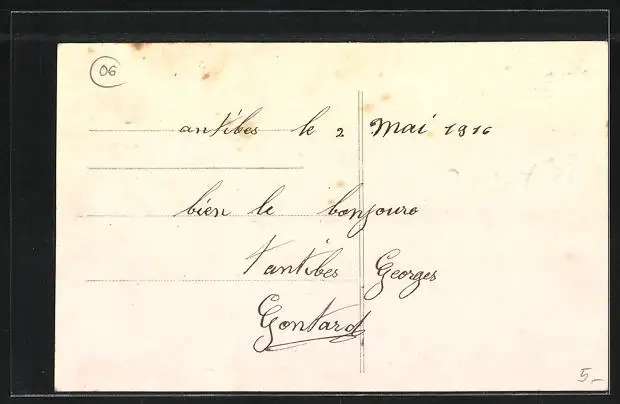 06
antibes le 2 Mai 1916
bien le bonjoure
tantibes Georges
Gontard
5,-